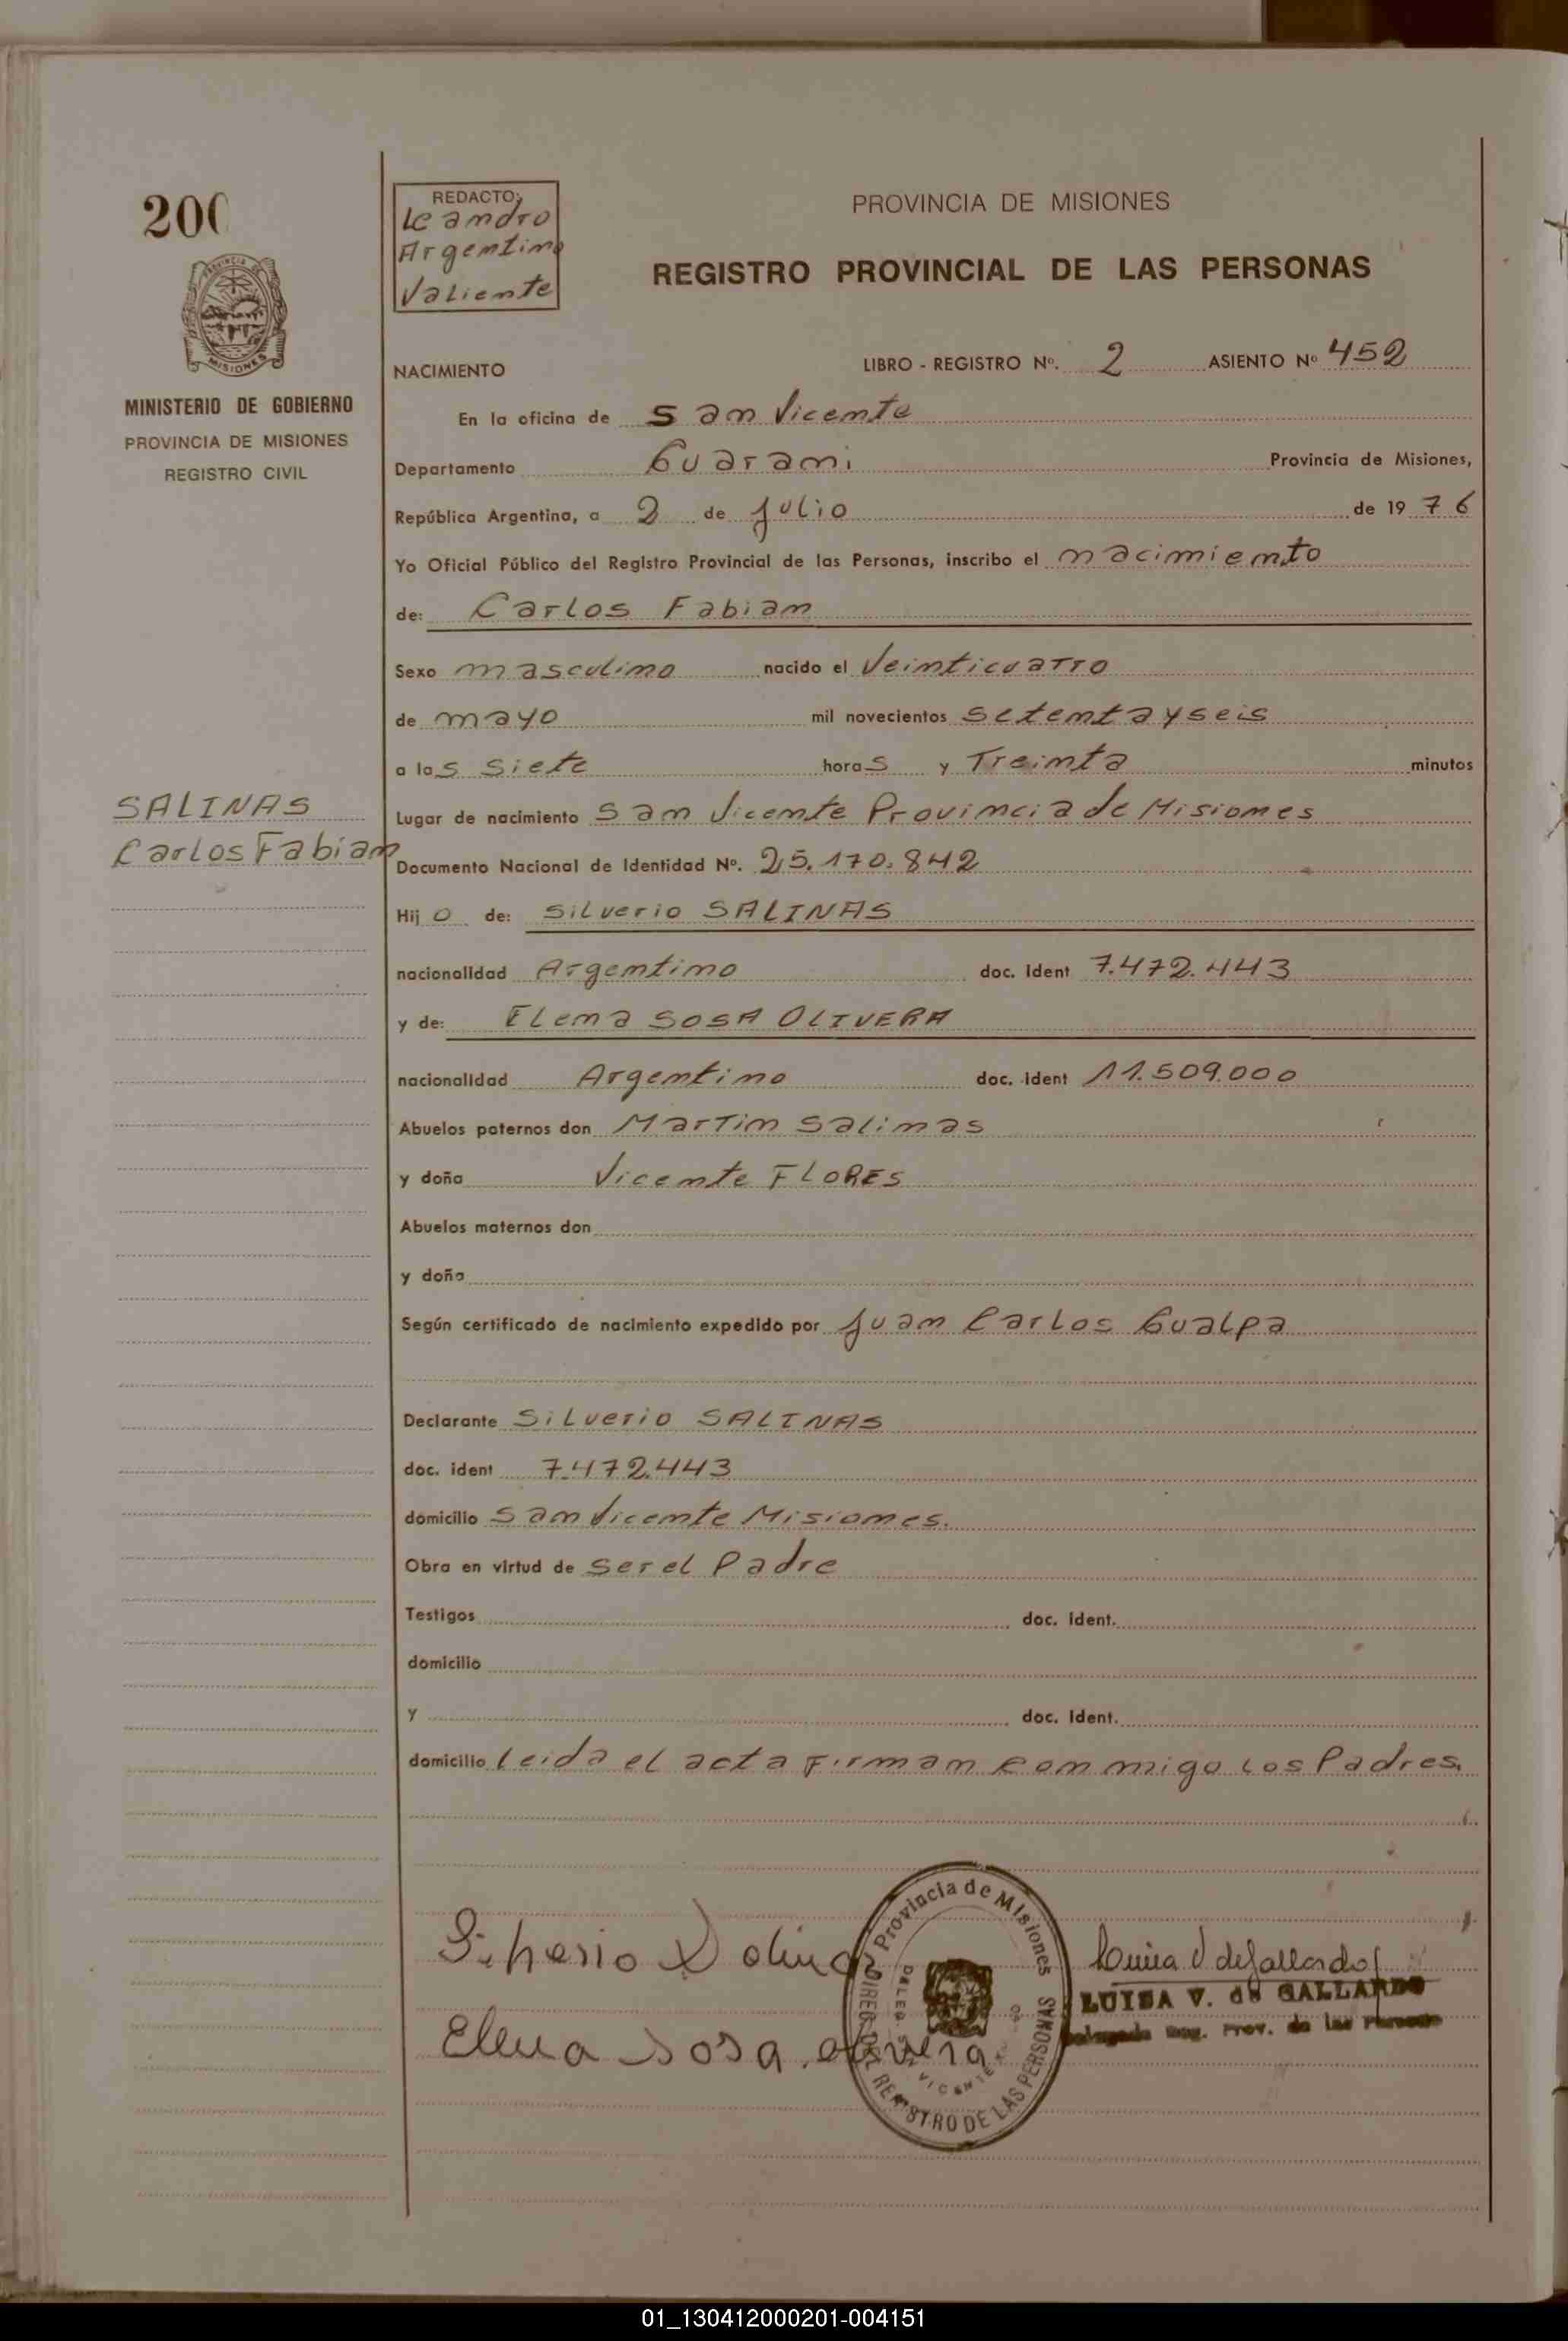 200
PROVINCIA DE
MISIONES
MINISTERIO DE GOBIERNO
PROVINCIA DE MISIONES
REGISTRO CIVIL
REDACTO:
Leandro
Argentino
Valiente
PROVINCIA DE MISIONES
REGISTRO PROVINCIAL DE LAS PERSONAS
NACIMIENTO LIBRO - REGISTRO Nº. 2 ASIENTO Nº 452
En la oficina de San Vicente
Departamento Guarani Provincia de Misiones,
República Argentina, a 2 de Julio de 19 76
Yo Oficial Público del Registro Provincial de las Personas, inscribo el nacimiento
de: Carlos Fabian
Sexo masculino nacido el Veinticuatro
de mayo mil novecientos setentayseis
a las siete horas y Treinta minutos
SALINAS
Carlos Fabian
Lugar de nacimiento San Vicente Provincia de Misiones
Documento Nacional de Identidad Nº. 25.170.842
Hijo de: Silverio SALINAS
nacionalidad Argentino doc. ident 7.472.443
y de: Elena SOSA OLIVERA
nacionalidad Argentino doc. ident 11.509.000
Abuelos paternos don Martin Salinas
y doña Vicente FLORES
Abuelos maternos don
y doña
Según certificado de nacimiento expedido por Juan Carlos Gualpa
Declarante Silverio SALINAS
doc. ident 7.472.443
domicilio San Vicente Misiones.
Obra en virtud de ser el Padre
Testigos doc. ident.
domicilio
y doc. ident.
domicilio Leida el acta Firman con migo los Padres.
Silverio Salinas
Elena Sosa olivera
Provincia de Misiones
DIREC. DEL REGISTRO DE LAS PERSONAS
VICENTE
Luisa V de Gallardo
LUISA V. de GALLARDO
Delegada Reg. Prov. de las Personas
01_130412000201-004151